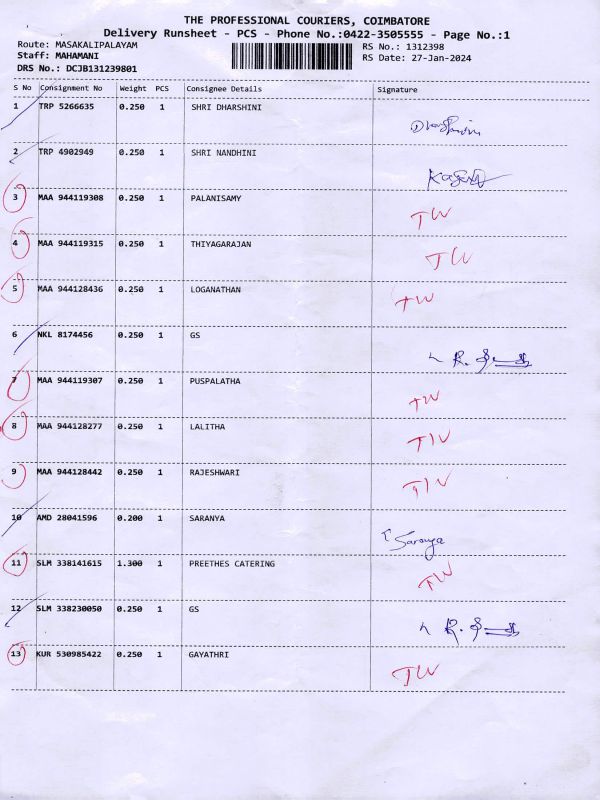 THE PROFESSIONAL COURIERS, COIMBATORE
Delivery Runsheet - PCS - Phone No.:0422-3505555 - Page No.:1
Route: MASAKALIPALAYAM RS No.: 1312398
Staff: MAHAMANI RS Date: 27-Jan-2024
DRS No.: DCJB131239801
S No Consignment No Weight PCS Consignee Details Signature
1 TRP 5266635 0.250 1 SHRI DHARSHINI
Dharshini
2 TRP 4902949 0.250 1 SHRI NANDHINI
3 MAA 944119308 0.250 1 PALANISAMY
TW
4 MAA 944119315 0.250 1 THIYAGARAJAN
TW
5 MAA 944128436 0.250 1 LOGANATHAN
TW
6 NKL 8174456 0.250 1 GS
7 MAA 944119307 0.250 1 PUSPALATHA
TW
8 MAA 944128277 0.250 1 LALITHA
TW
9 MAA 944128442 0.250 1 RAJESHWARI
TW
10 AMD 28041596 0.200 1 SARANYA
Saranya
11 SLM 338141615 1.300 1 PREETHES CATERING
TW
12 SLM 338230050 0.250 1 GS
13 KUR 530985422 0.250 1 GAYATHRI
TW